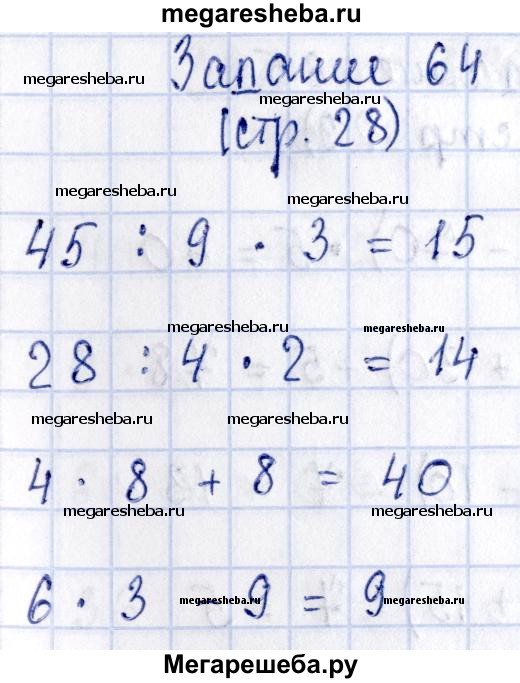 megaresheba.ru
Задание 64
megaresheba.ru
megaresheba.ru
(стр. 28)
megaresheba.ru
megaresheba.ru
45 : 9 · 3 = 15
megaresheba.ru
megaresheba.ru
28 : 4 · 2 = 14
megaresheba.ru
megaresheba.ru
4 · 8 + 8 = 40
megaresheba.ru
megaresheba.ru
6 · 3 - 9 = 9
megaresheba.ru
megaresheba.ru
Мегарешеба.ру